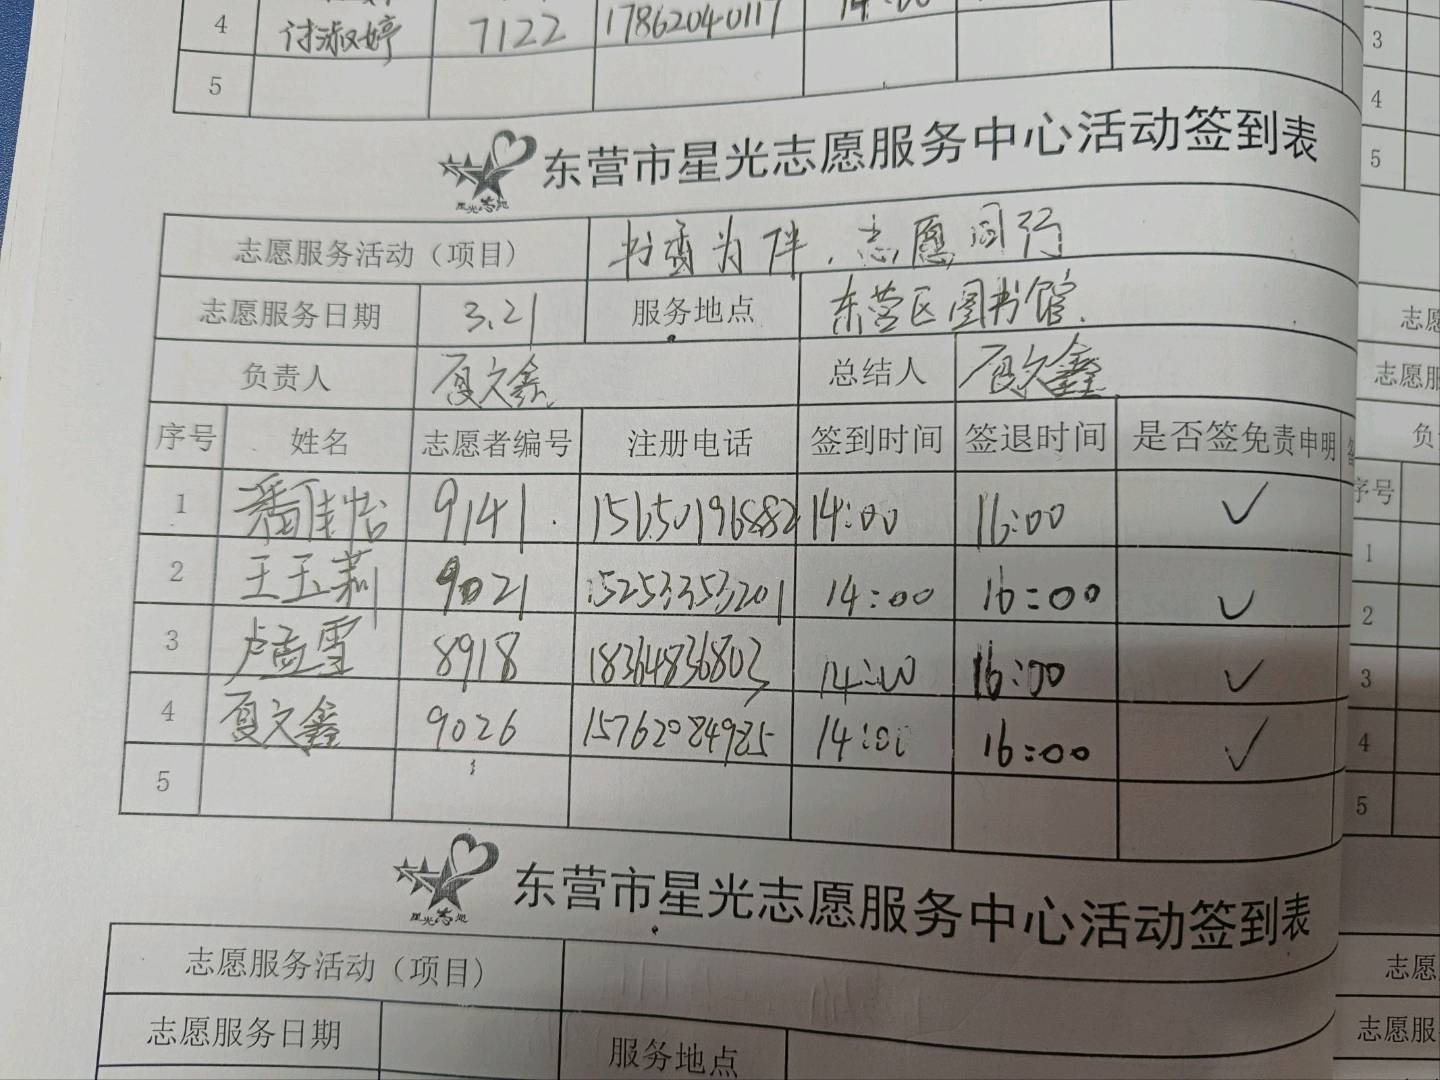 4 许淑婷 7122 17862040117 14:00
5
东营市星光志愿服务中心活动签到表
星光志愿
志愿服务活动（项目） 书香为伴，志愿同行
志愿服务日期 3.21 服务地点 东营区图书馆.
负责人 夏文鑫 总结人 夏文鑫
序号 姓名 志愿者编号 注册电话 签到时间 签退时间 是否签免责申明
1 潘佳怡 9141. 15650196882 14:00 16:00 ✓
2 王玉莉 9021 15253353201 14:00 16:00 ✓
3 卢孟雪 8918 18364836803 14:00 16:00 ✓
4 夏文鑫 9026 15762084985 14:00 16:00 ✓
5
东营市星光志愿服务中心活动签到表
星光志愿
志愿服务活动（项目）
志愿服务日期 服务地点
3
4
5
志愿
志愿服
负
序号
1
2
3
4
5
志愿
志愿服